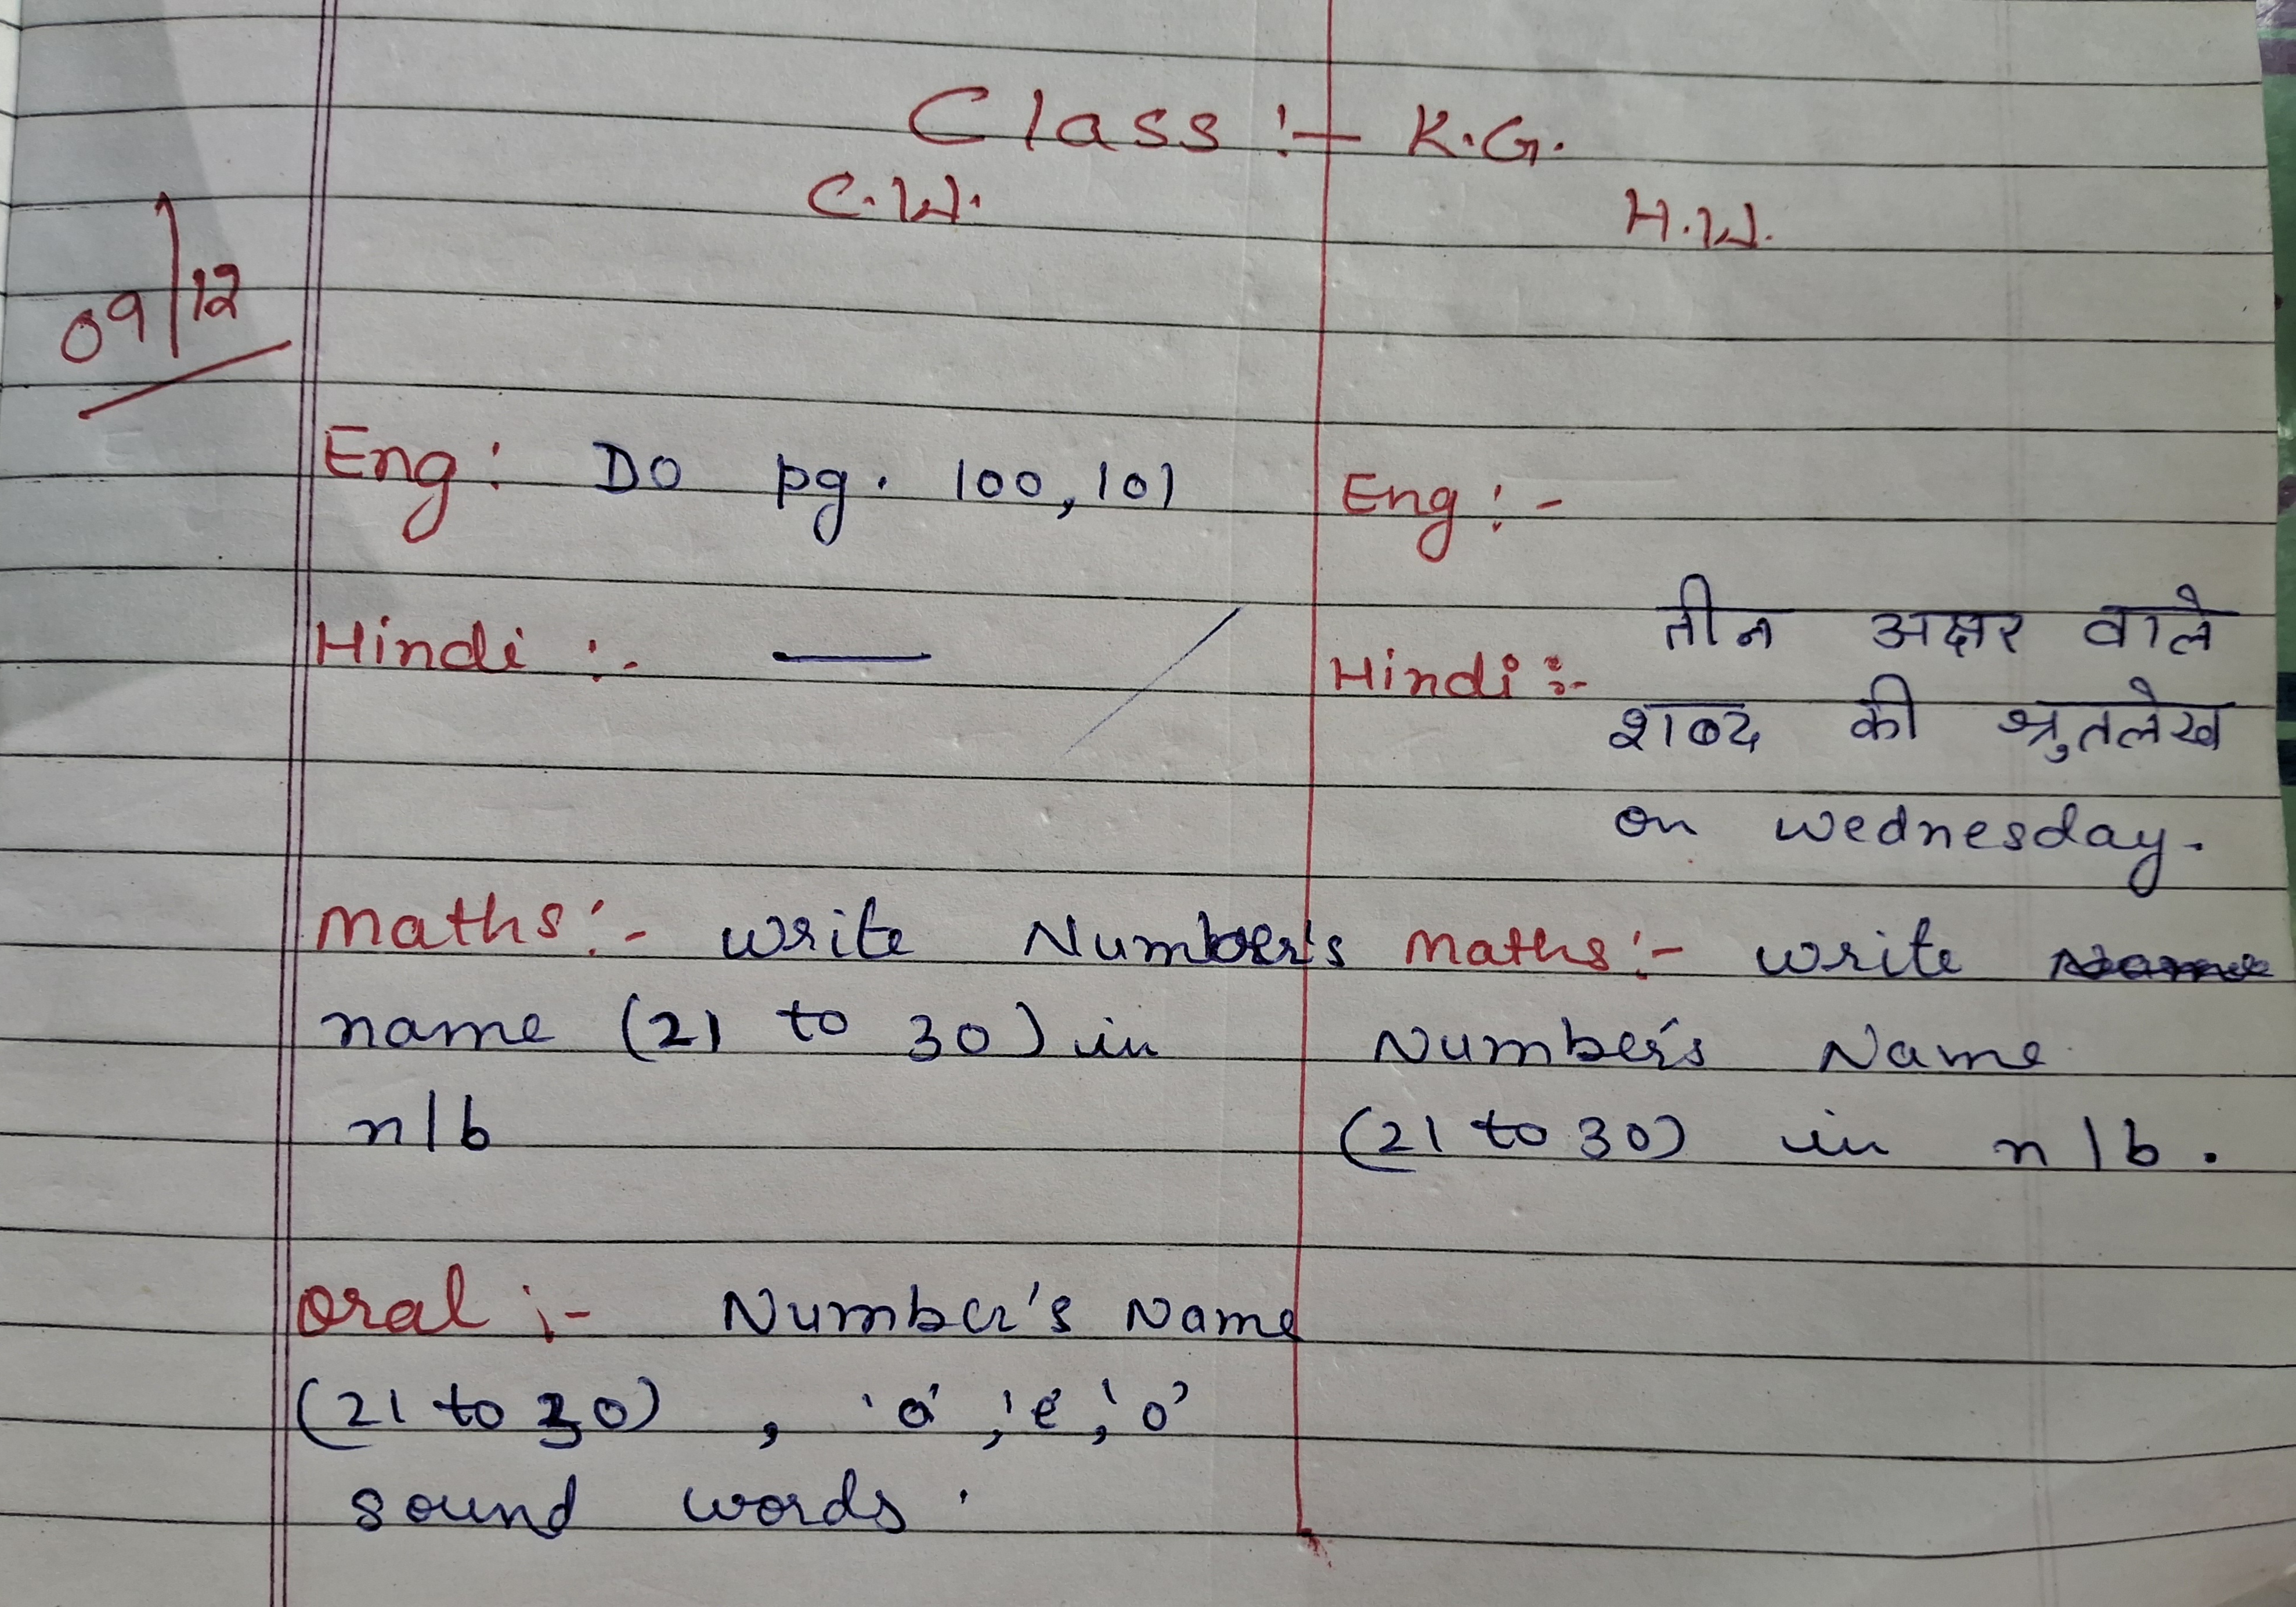 Class :- K.G.
C.W.
H.W.
09/12
Eng: Do pg. 100, 101
Hindi :- —
Maths:- write Number's
name (21 to 30) in
n/b
Oral :- Number's Name
(21 to 30) , 'a', 'e', 'o'
sound words.
Eng :-
तीन अक्षर वाले
Hindi :-
शब्द की श्रुतलेख
on wednesday.
Maths:- write
Number's Name
(21 to 30) in n/b.